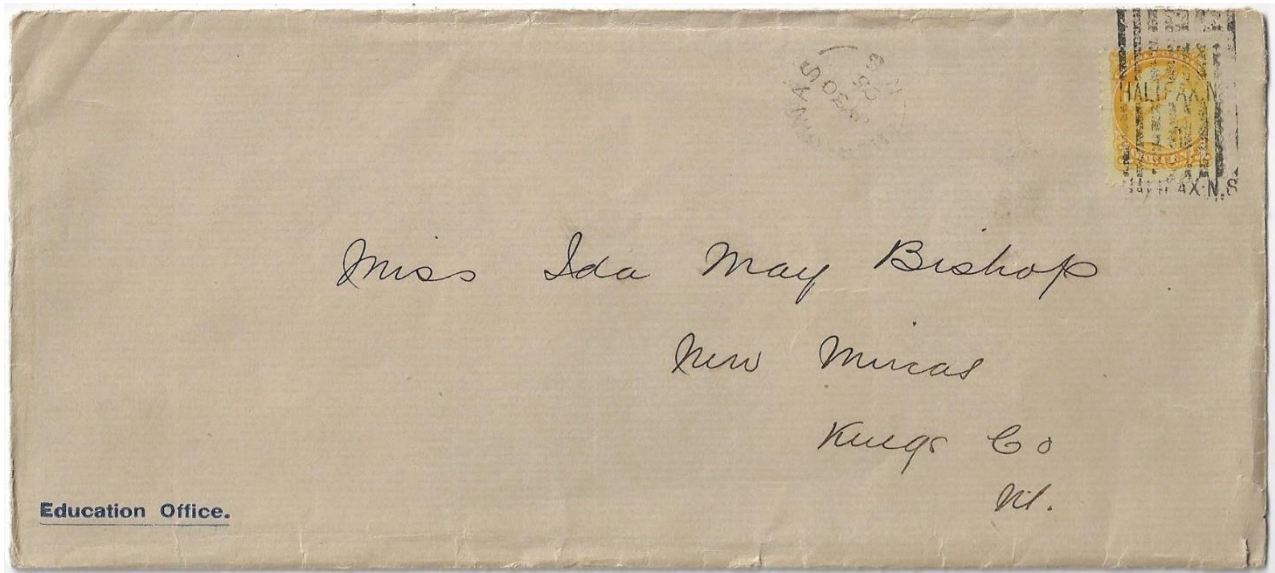 HALIFAX N.
HALIFAX N.S.
Miss Ida May Bishop
New Minas
Kings Co
N.S.
Education Office.